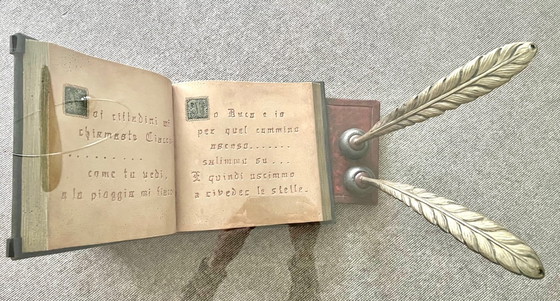 Voi cittadini mi
chiamaste Ciacco
.........
come tu vedi,
a la pioggia mi fiacco
Lo Duca e io
per quel cammino
ascoso.......
salimmo su ...
E quindi uscimmo
a riveder le stelle.